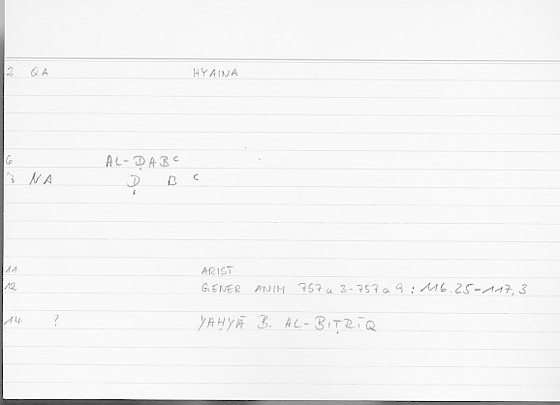 2 QA HYAINA
6 AL-ḌABᶜ
7 NA Ḍ B ᶜ
11 ARIST
12 GENER ANIM 757a3-757a9 : 116.25-117,3
14 ? YAḤYĀ B. AL-BIṬRĪQ